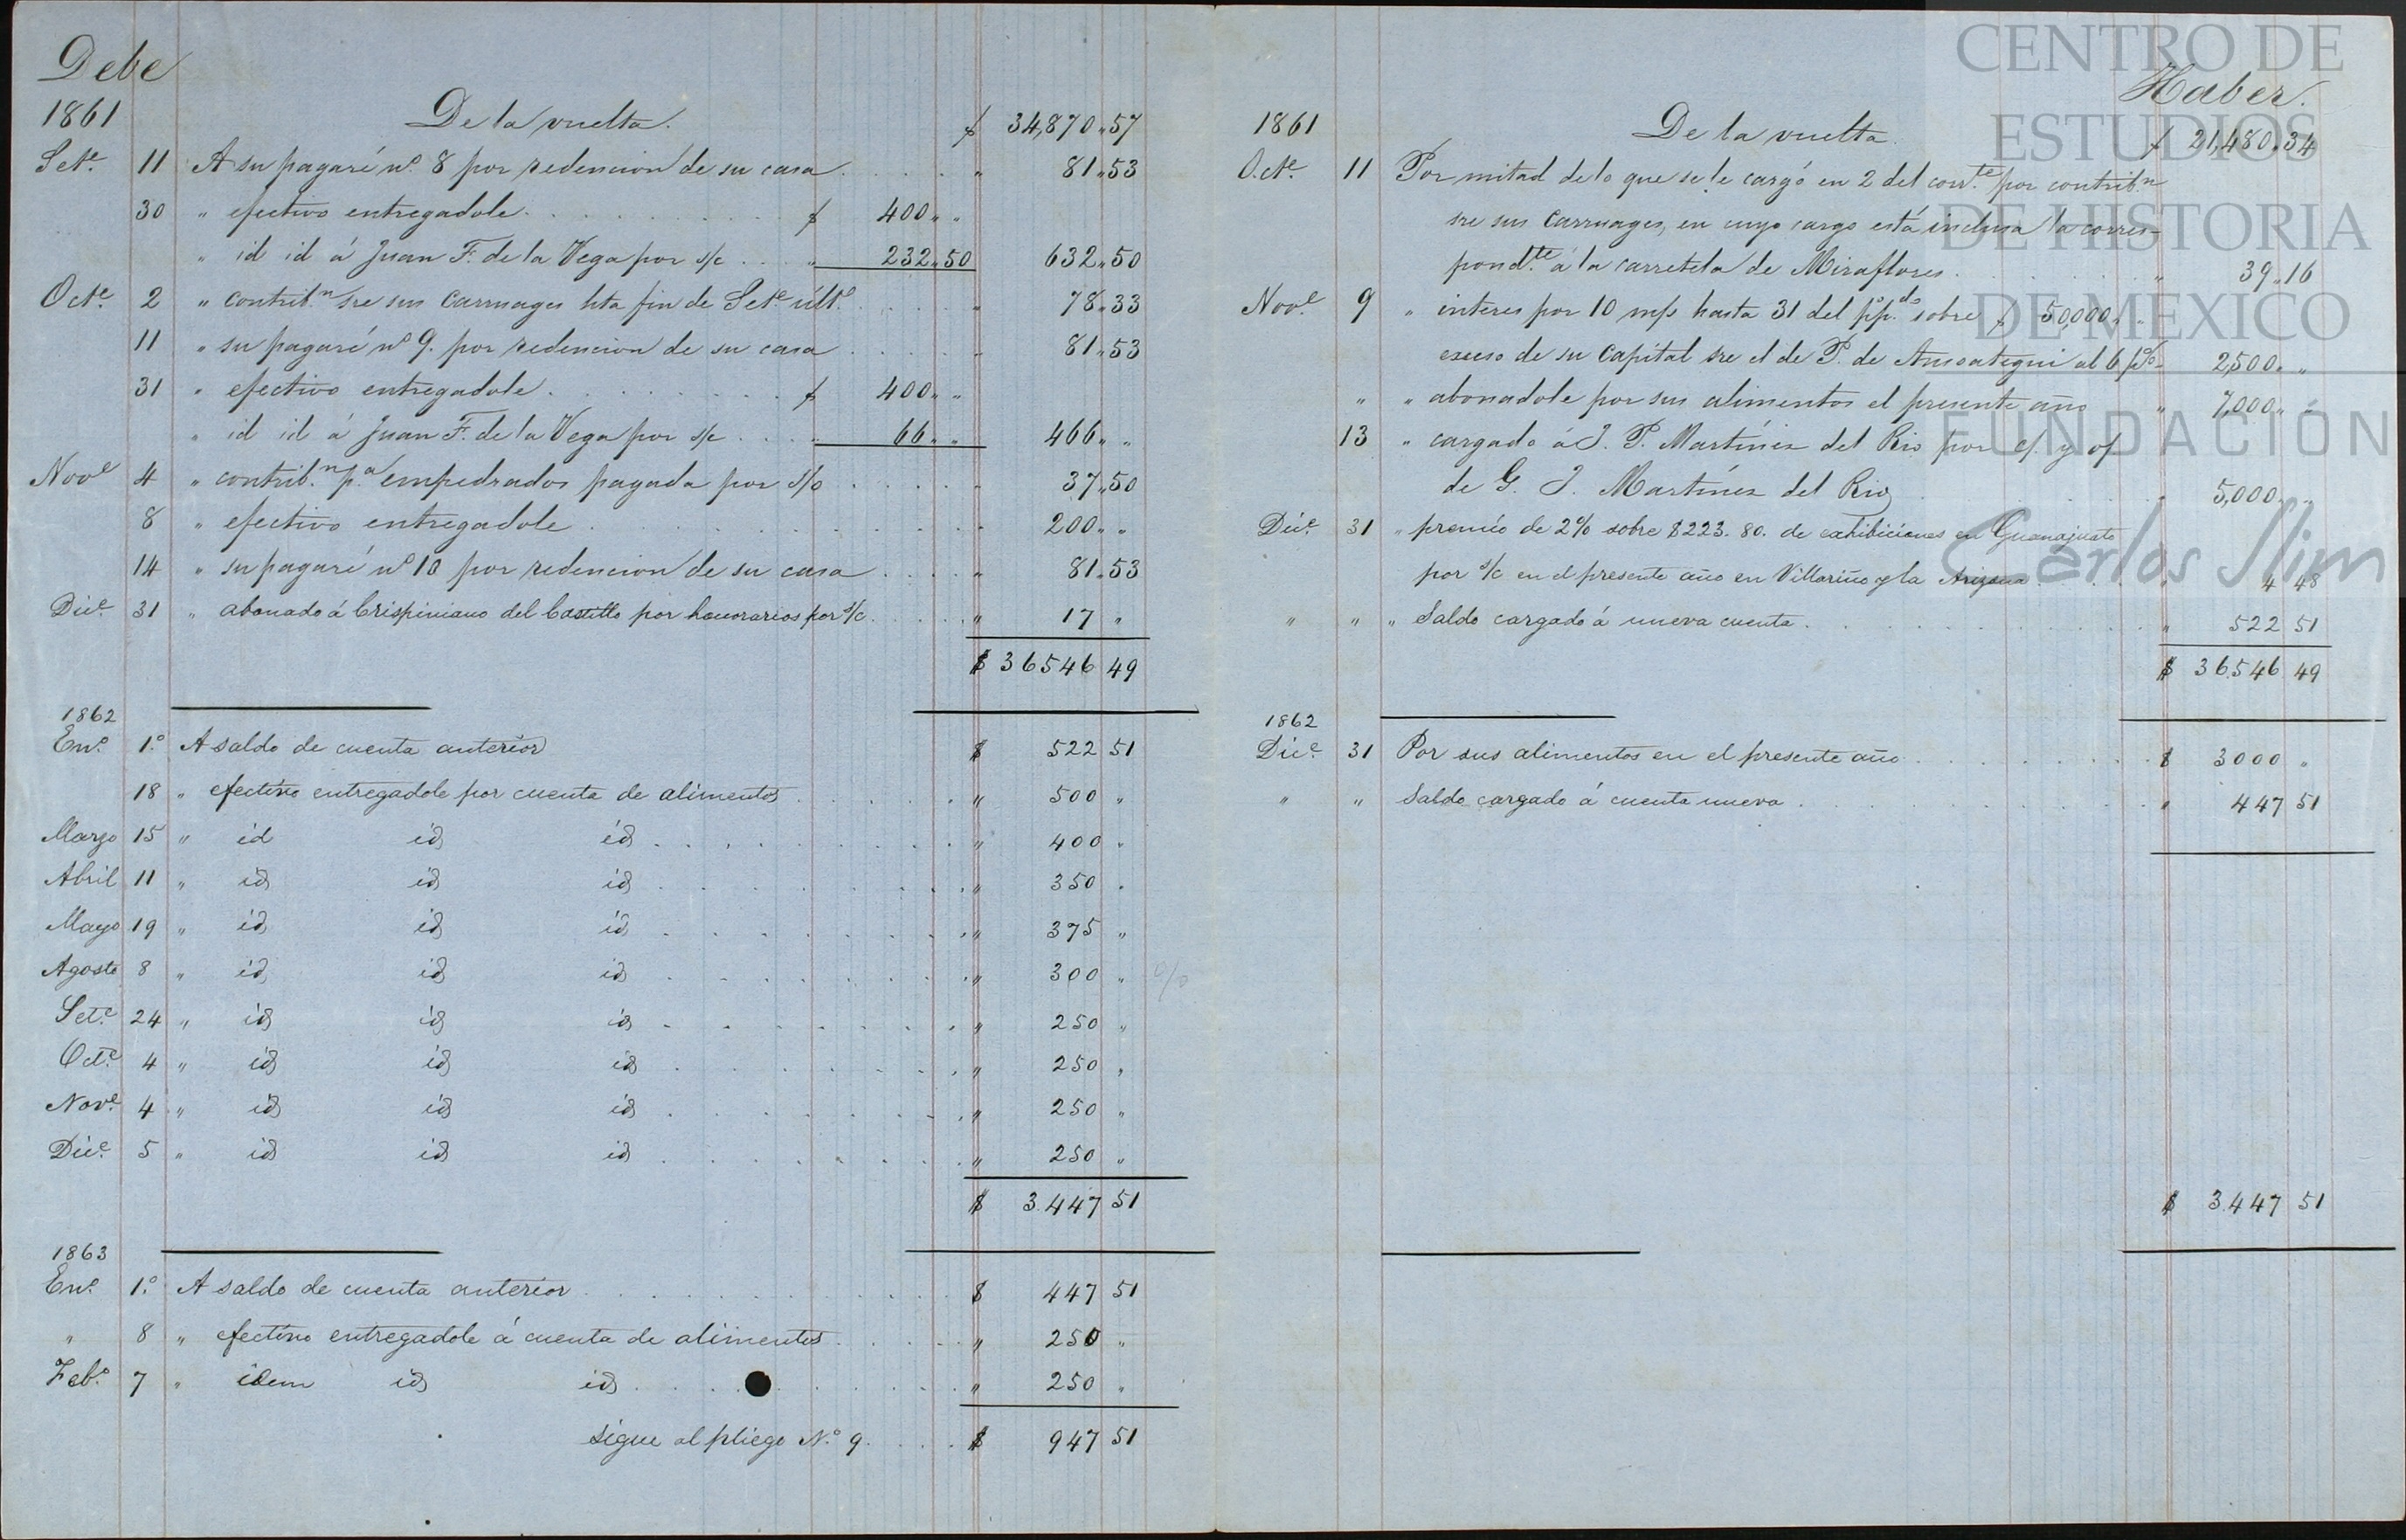 Debe
1861 De la vuelta. $ 34,870.,57
Set.e 11 A su pagaré n.o 8 por redencion de su casa . . . . " 81.,53
30 " efectivo entregadole . . . . $ 400.. "
" id id á Juan F. de la Vega por s/c . . . " 232.,50 632.,50
Oct.e 2 " contrib.n sre sus carruages hta fin de Set.e últ.o . . . . " 78.,33
11 " su pagaré n.o 9. por redencion de su casa . . . . " 81.,53
31 " efectivo entregadole . . . . $ 400.. "
" id id á Juan F. de la Vega por s/c . . . " 66.. " 466.. "
Nov.e 4 " contrib.n p.a empedrados pagada por s/o . . . . " 37.,50
8 " efectivo entregadole . . . . " 200.. "
14 " su pagaré n.o 10 por redencion de su casa . . . . " 81.,53
Dic.e 31 " abonado á Crispiniano del Castillo por honorarios por s/c . . . . " 17 "
$ 36546 49
1862
En.o 1.o A saldo de cuenta anterior $ 522 51
18 " efectivo entregadole por cuenta de alimentos . . . . " 500 "
Marzo 15 " id id id . . . . " 400 "
Abril 11 " id id id . . . . " 350 "
Mayo 19 " id id id . . . . " 375 "
Agosto 8 " id id id . . . . " 300 "
Set.e 24 " id id id . . . . " 250 "
Oct.e 4 " id id id . . . . " 250 "
Nov.e 4 " id id id . . . . " 250 "
Dic.e 5 " id id id . . . . " 250 "
$ 3.447 51
1863
En.o 1.o A saldo de cuenta anterior . . . . $ 447 51
" 8 " efectivo entregadole á cuenta de alimentos . . . . " 250 "
Feb.o 7 " idem id id . . . . " 250 "
sigue al pliego N.o 9 . . . . $ 947 51
Haber.
1861 De la vuelta. $ 21,480.,34
Oct.e 11 Por mitad de lo que se le cargó en 2 del corr.te por contrib.n
sre sus carruages, en cuyo cargo está inclusa la corres-
pond.te á la carretela de Miraflores . . . . " 39.,16
Nov.e 9 " interes por 10 m/s hasta 31 del p.p.do sobre $ 50,000.. "
exceso de su Capital sre el de P. de Ansoategui al 6 p% " 2,500.. "
" " abonadole por sus alimentos el presente año " 7,000.. "
13 " cargado á J. P. Martínez del Rio por c/. y o/
de G. J. Martínez del Rio . . . . " 5,000.. "
Dic.e 31 " premio de 2% sobre $223.80. de exhibiciones en Guanajuato
por s/c en el presente año en Villariño y la Arizona . . . . " 4 48
" " " Saldo cargado á nueva cuenta . . . . " 522 51
$ 36.546 49
1862
Dic.e 31 Por sus alimentos en el presente año . . . . $ 3000 "
" " Saldo cargado á cuenta nueva . . . . " 447 51
$ 3.447 51
CENTRO DE
ESTUDIOS
DE HISTORIA
DE MEXICO
FUNDACIÓN
Carlos Slim